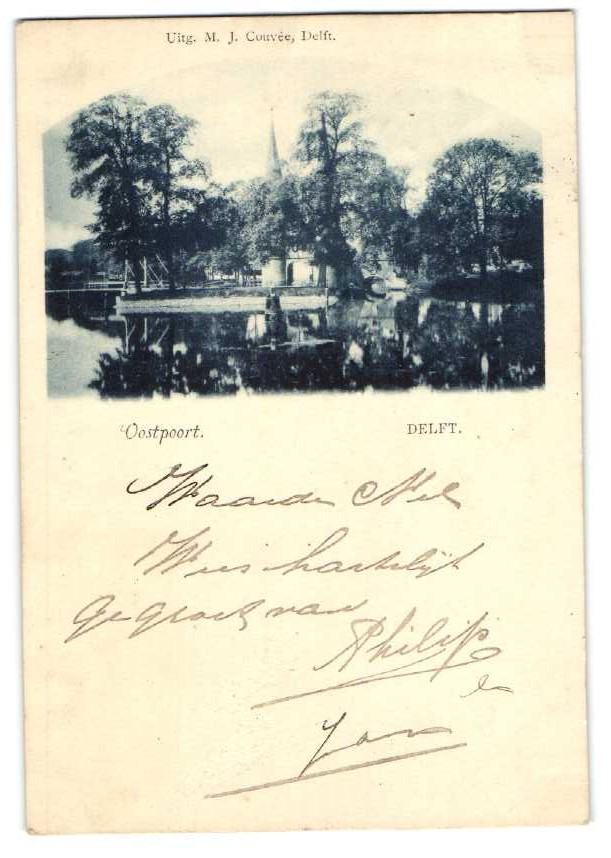 Uitg. M. J. Couvée, Delft.
Oostpoort. DELFT.
Waarde Nel
Wees hartelijk
gegroet van
Philip
en
Jan